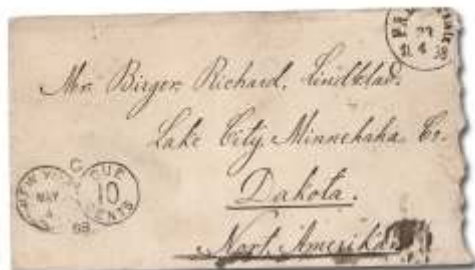 Mr. Birger Richard. Lindblad.
Lake City, Minnehaha Co.
Dakota.
Nort. Amerika.
NEW YORK
MAY
DUE
10
CENTS